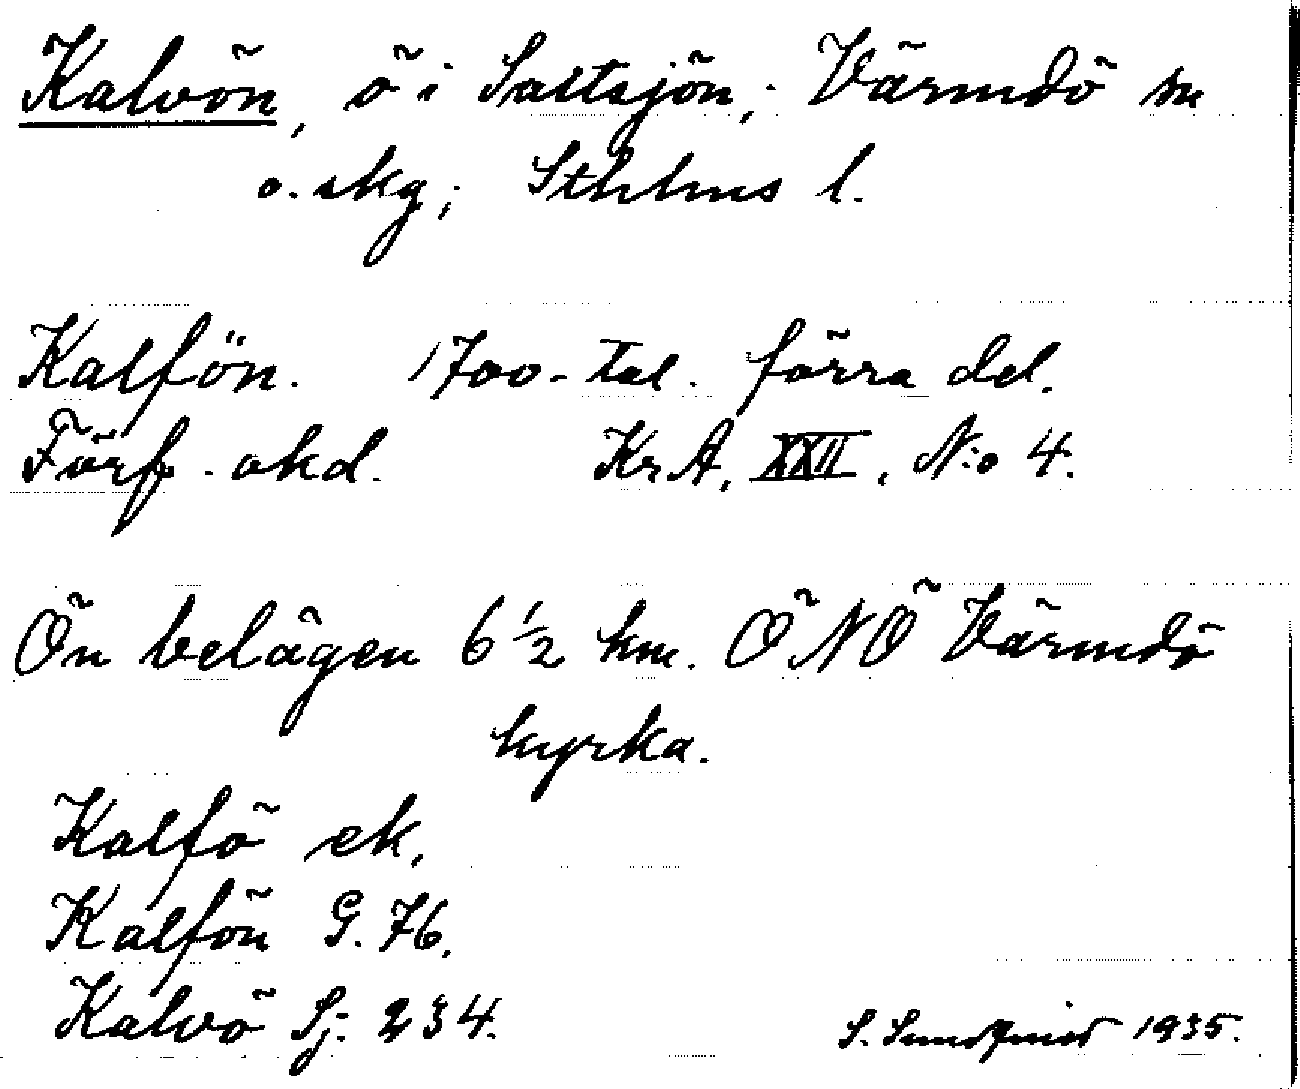 Kalvön, ö i Saltsjön; Värmdö sn
o. skg; Sthlms l.
Kalfön. 1700-tal. förra del.
Förf. okd. KrA, XXII, N:o 4.
Ön belägen 6 ½ km. ÖNÖ Värmdö
kyrka.
Kalfö ek.
Kalfön G. 76.
Kalvö Sj. 234.
S. Sundqvist 1935.